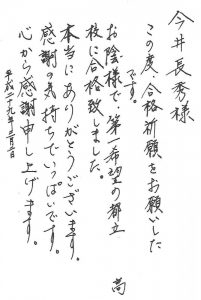 今井長秀様
この度、合格祈願をお願いした
です。
お陰様で、第一希望の都立 高
校に合格致しました。
本当にありがとうございます。
感謝の気持ちでいっぱいです。
心から感謝申し上げます。
平成二十九年三月二日